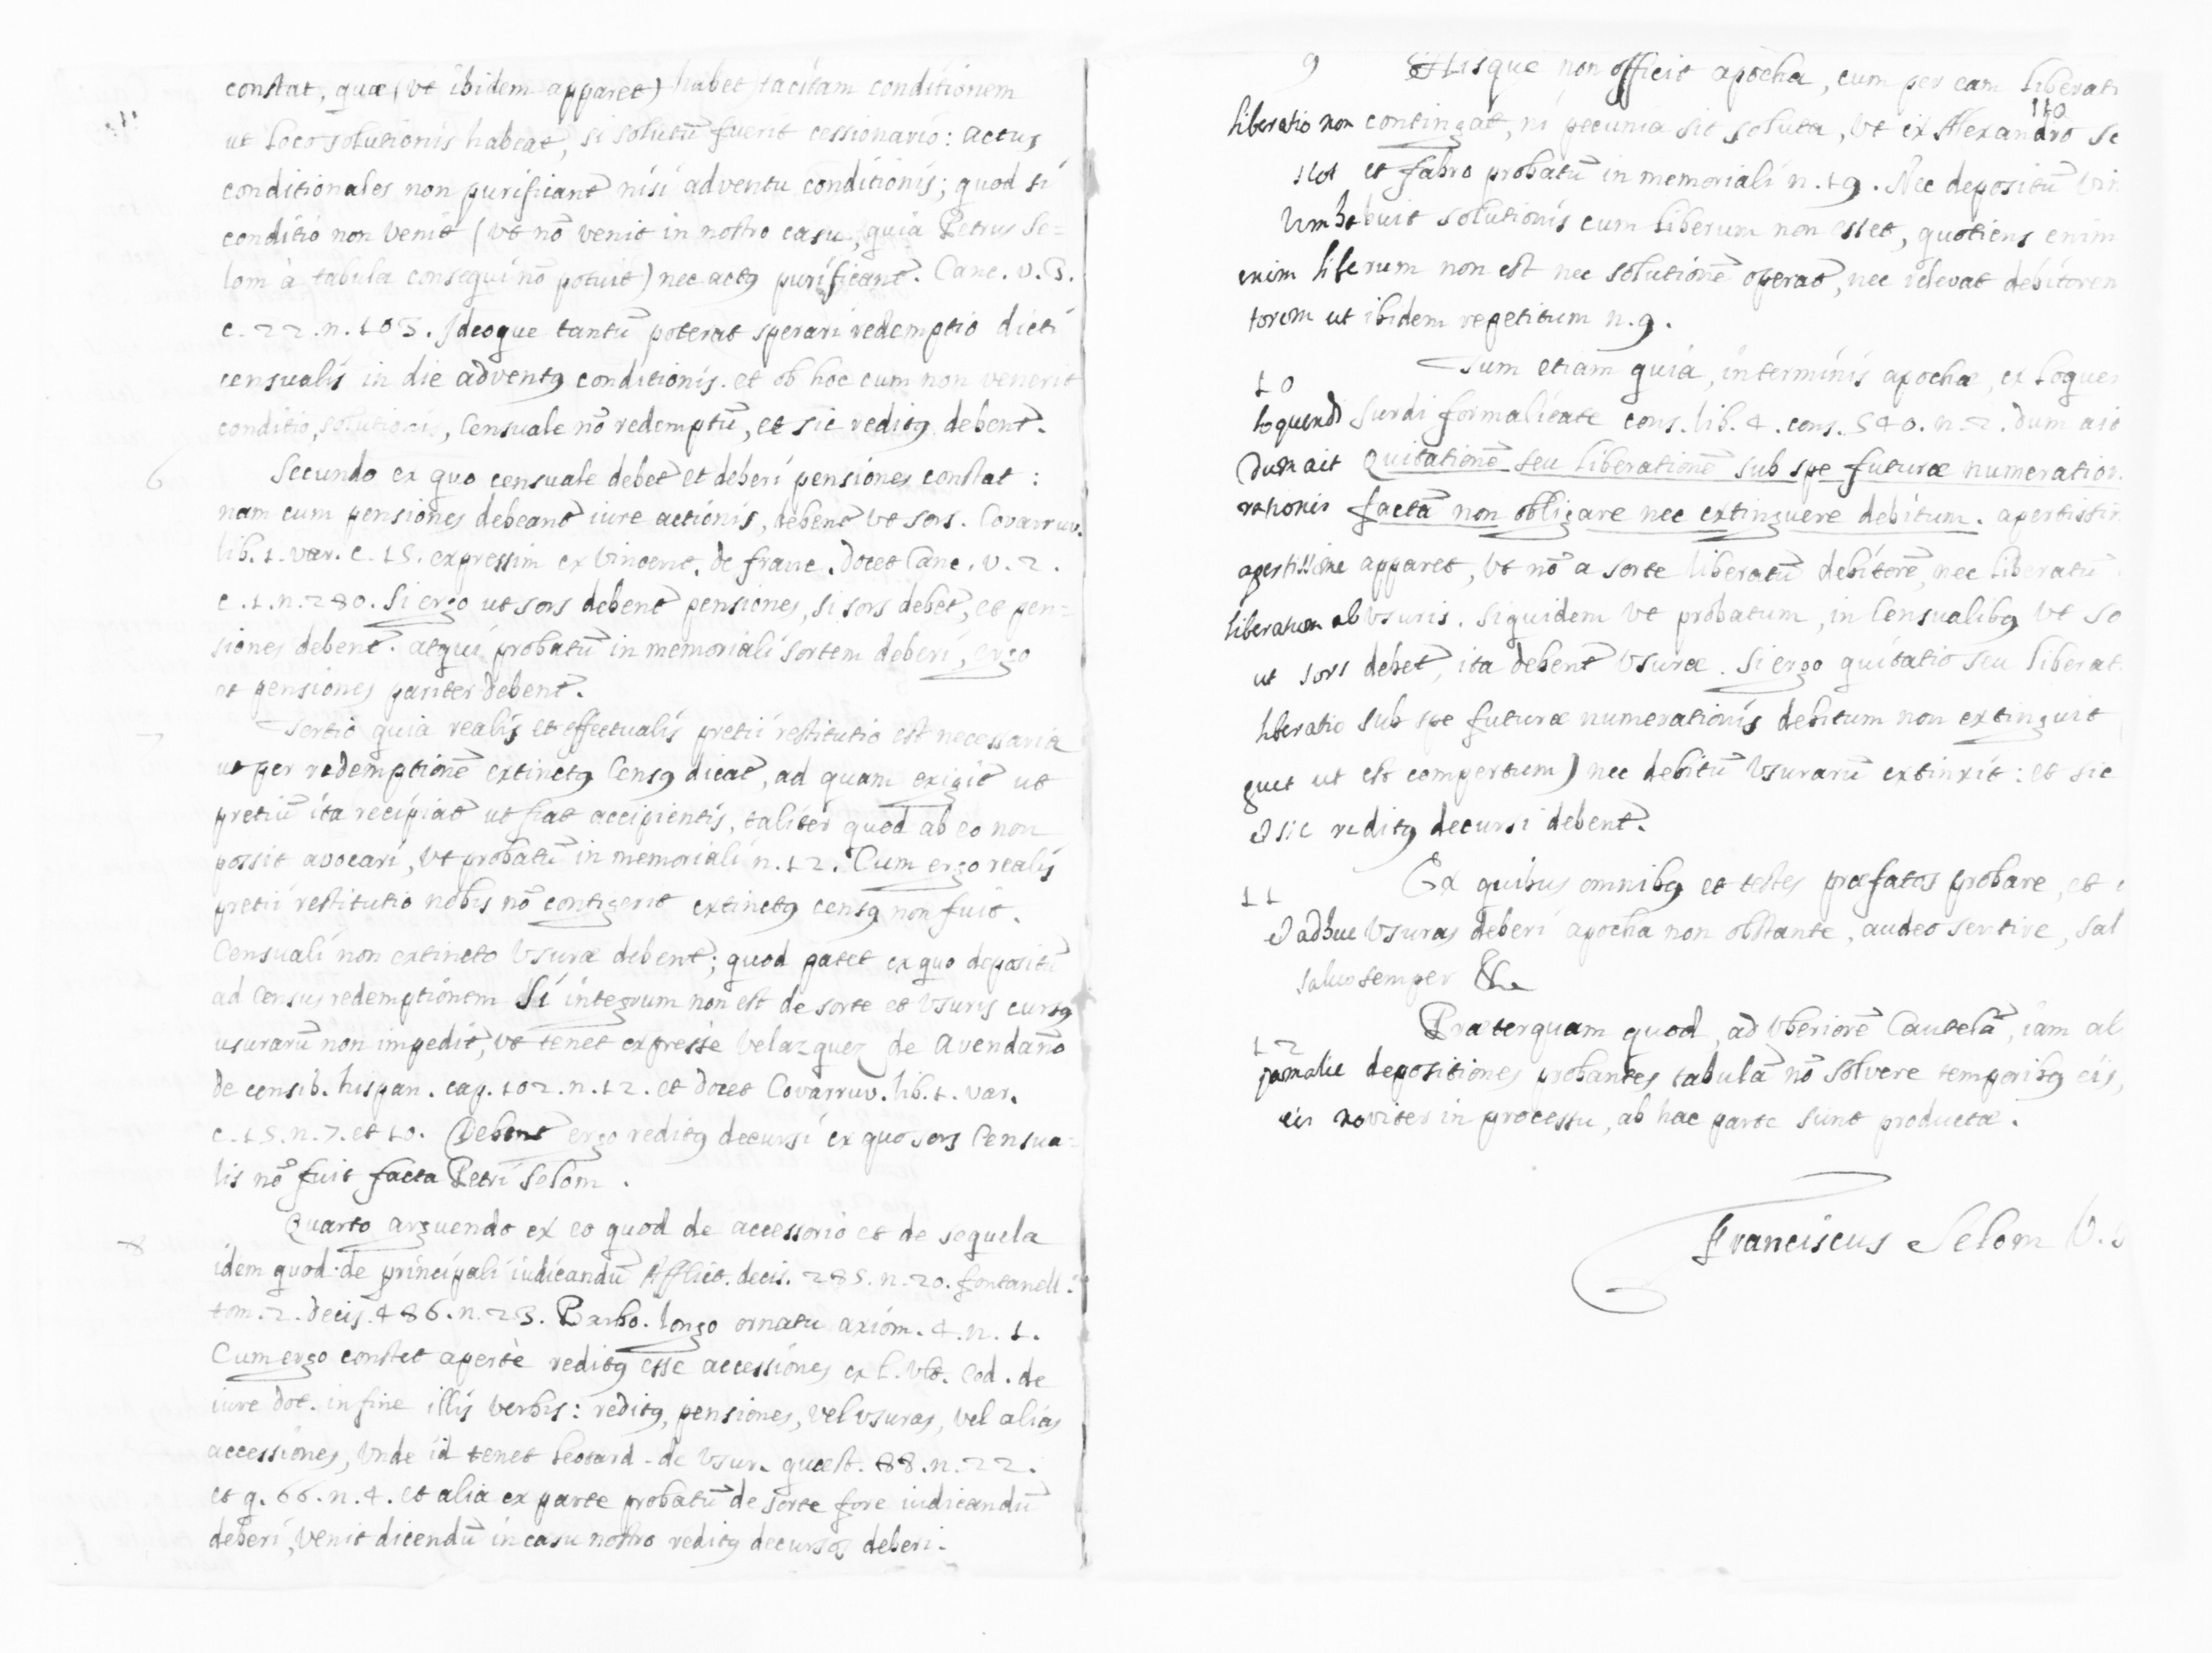 constat, quæ (vt ibidem apparet) habet tacitam conditionem
ut loco solutionis habeat̃, si solutũ fuerit cessionario: actus
conditionales non purificant̃ nisi adventu conditionis; quod si
conditio non venit (vt nõ venit in nostro casu, quia Petrus Se=
lom à tabula consequi nõ potuit) nec actꝯ purificant̃. Canc. v. 3.
c. 22. n. 103. Ideoque tantũ poterat sperari redemptio dicti
censualis in die adventꝯ conditionis. et ob hoc cum non venerit
conditio, solutionis, Censuale nõ redemptũ, et sic reditꝯ debent̃.
6 Secundo ex quo censuale debet̃ et deberi pensiones constat:
nam cum pensiones debeant̃ iure actionis, debent̃ vt sors. Covarruv.
lib. 1. var. c. 15. expressim ex Vincent. de franc. docet Canc. v. 2.
c. 1. n. 280. Si ergo ut sors debent̃ pensiones, si sors debet̃, et pen=
siones debent̃. atqui probatũ in memoriali sortem deberi, ergo
et pensiones pariter debent̃.
7 Tertio quia realis et effectualis pretii restitutio est necessaria
ut per redemptionẽ extinctꝯ Censꝯ dicat̃, ad quam exigit̃ ut
pretiũ ita recipiat̃ ut fiat accipientis, taliter quod ab eo non
possit avocari, vt probatũ in memoriali n. 12. Cum ergo realis
pretii restitutio nobis nõ contigerit extinctꝯ censꝯ non fuit.
Censuali non extincto vsuræ debent̃; quod patet ex quo depositũ
ad Census redemptionem si integrum non est de sorte et vsuris cursꝯ
usurarũ non impedit̃, vt tenet expressè Velazquez de Avendaño
de censib. hispan. cap. 102. n. 12. et docet Covarruv. lib. 1. var.
c. 15. n. 7. et 10. Debent̃ ergo reditꝯ decursi ex quo sors Censua=
lis nõ fuit facta Petri Selom.
8 Quarto arguendo ex eo quod de accessorio et de sequela
idem quod de principali iudicandũ Afflict. decis. 285. n. 20. fontanell.
tom. 2. decis. 486. n. 23. Barbo. longo ornatu axiom. 4. n. 1.
Cum ergo constet apertè reditꝯ esse accessiones ex l. vlt. Cod. de
iure dot. in fine illis verbis: reditꝯ, pensiones, vel vsuras, vel alias
accessiones, vnde id tenet Leotard. de vsur. quæst. 88. n. 22.
et q. 66. n. 4. et alia ex parte probatũ de sorte fore iudicandũ
deberi, venit dicendũ in casu nostro reditꝯ decursos deberi.
110
9 Hisque non officit apocha, cum per eam liberati
liberatio non contingat, ni pecunia sit soluta, vt ex Alexandro Sc
et fabro probatũ in memoriali n. 19. Nec depositũ vim
vim habuit solutionis cum liberum non esset, quotiens enim
enim liberum non est nec solutionẽ operat̃, nec relevat debitorem
torem ut ibidem repetitum n. 9.
10 Tum etiam quia, in terminis apochæ, ex loquen
loquendi Surdi formalitate cons. lib. 4. cons. 540. n. 2. dum ait
dum ait Quitationẽ seu liberationẽ sub spe futuræ numeration
rationis factã non obligare nec extinguere debitum. apertissim
apertissime apparet, vt nõ a sorte liberatũ debitorẽ, nec liberatũ
liberatum ab vsuris. Siquidem vt probatum, in Censualibꝯ vt so
ut sors debet̃, ita debent̃ vsuræ. Si ergo quitatio seu liberat
liberatio sub spe futuræ numerationis debitum non extinguit
guit ut est compertum) nec debitũ vsurarũ extinxit: et sic
et sic reditꝯ decursi debent̃.
11 Ex quibus omnibꝯ et testes præfatos probare, et
et adhuc vsuras deberi apocha non obstante, audeo sentire, sal
salvo semper &c
12 Præterquam quod, ad vberiorẽ Cautelã, iam al
iam aliæ depositiones probantes tabulã nõ solvere temporibꝯ eis,
eis noviter in processu, ab hac parte sunt productæ.
Franciscus Selom V.